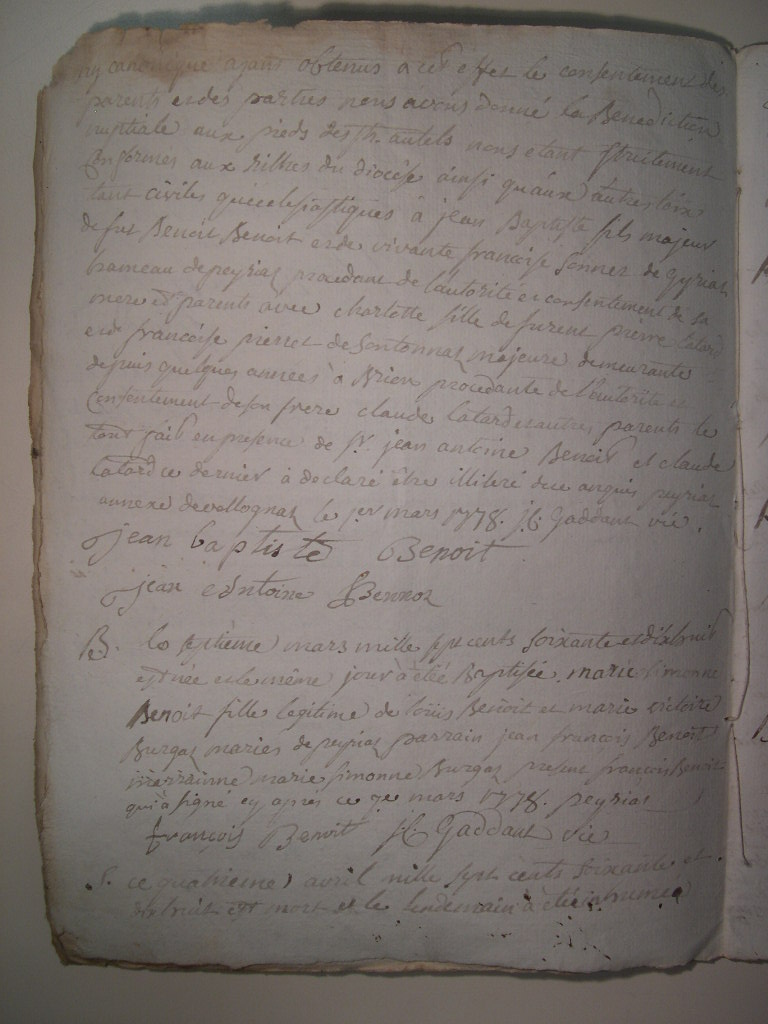 ny canonique ayant obtenus à cet effet le consentement des
parents et des parties nous avons donné la Benediction
nuptiale aux pieds des st. autels nous etant strictement
conformés aux rittres du diocése ainsi qu'aux autres loix
tant civiles qu'ecclesiastiques à jean Baptiste fils majeur
de fut Benoit Benoit et de vivante francoise Sonnez de gyriat
hameau de peyriaz procedant de l'autorité et consentement de sa
mere et parents avec charlotte fille de furent pierre Catard
et de francoise pierret de Sontonnaz majeure demeurante
depuis quelques années à Brion procedante de l'autorité et
Consentement de son frere claude Catard et autres parents le
tout fait en presence de sr. jean antoine Benoit et claude
Catard ce dernier à declaré être illiteré de ce enquis peyriaz
annexe de vollognaz le 1er mars 1778. Gaddant vic.
jean baptiste Benoit
jean Antoine Bennoi
B. le septième mars mille sept cents soixante et dix huit
est née et le même jour à été Baptisée marie simonne
Benoit fille legitime de loüis Benoit et marie victoire
Burgaz mariés de peyriaz parrain jean françois Benoit
merrainne marie simonne Burgaz present françois Benoit
qui à signé cy aprés ce 7e mars 1778. peyriat
françois Benoit Gaddant vic
S. ce quatrieme avril mille sept cents soixante et
dix huit est mort et le lendemain à été inhumée